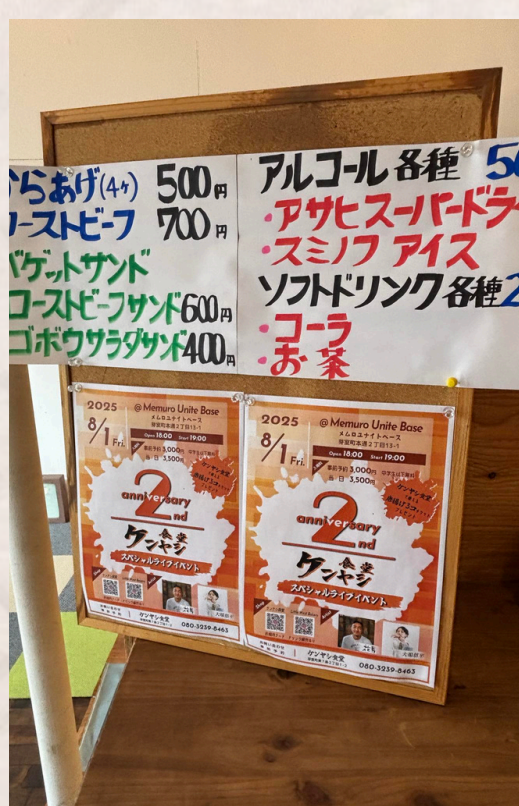 らあげ(4ヶ) 500円
ーストビーフ 700円
バゲットサンド
ローストビーフサンド 600円
ゴボウサラダサンド 400円
アルコール各種 50
・アサヒスーパードラ
・スミノフ アイス
ソフトドリンク各種 2
・コーラ
・お茶
2025
8/1 Fri.
@Memuro Unite Base
メムロユナイトベース
芽室町本通2丁目13-1
Open 18:00 Start 19:00
事前予約 3,000円
当日 3,500円
中学生以下無料
ケンヤシ食堂
2
anniversary
nd
食堂
ケンヤシ
スペシャルライブイベント
ケンヤシ食堂
080-3239-8463
2025
8/1 Fri.
@Memuro Unite Base
メムロユナイトベース
芽室町本通2丁目13-1
Open 18:00 Start 19:00
事前予約 3,000円
当日 3,500円
中学生以下無料
ケンヤシ食堂
2
anniversary
nd
食堂
ケンヤシ
スペシャルライブイベント
ケンヤシ食堂
080-3239-8463